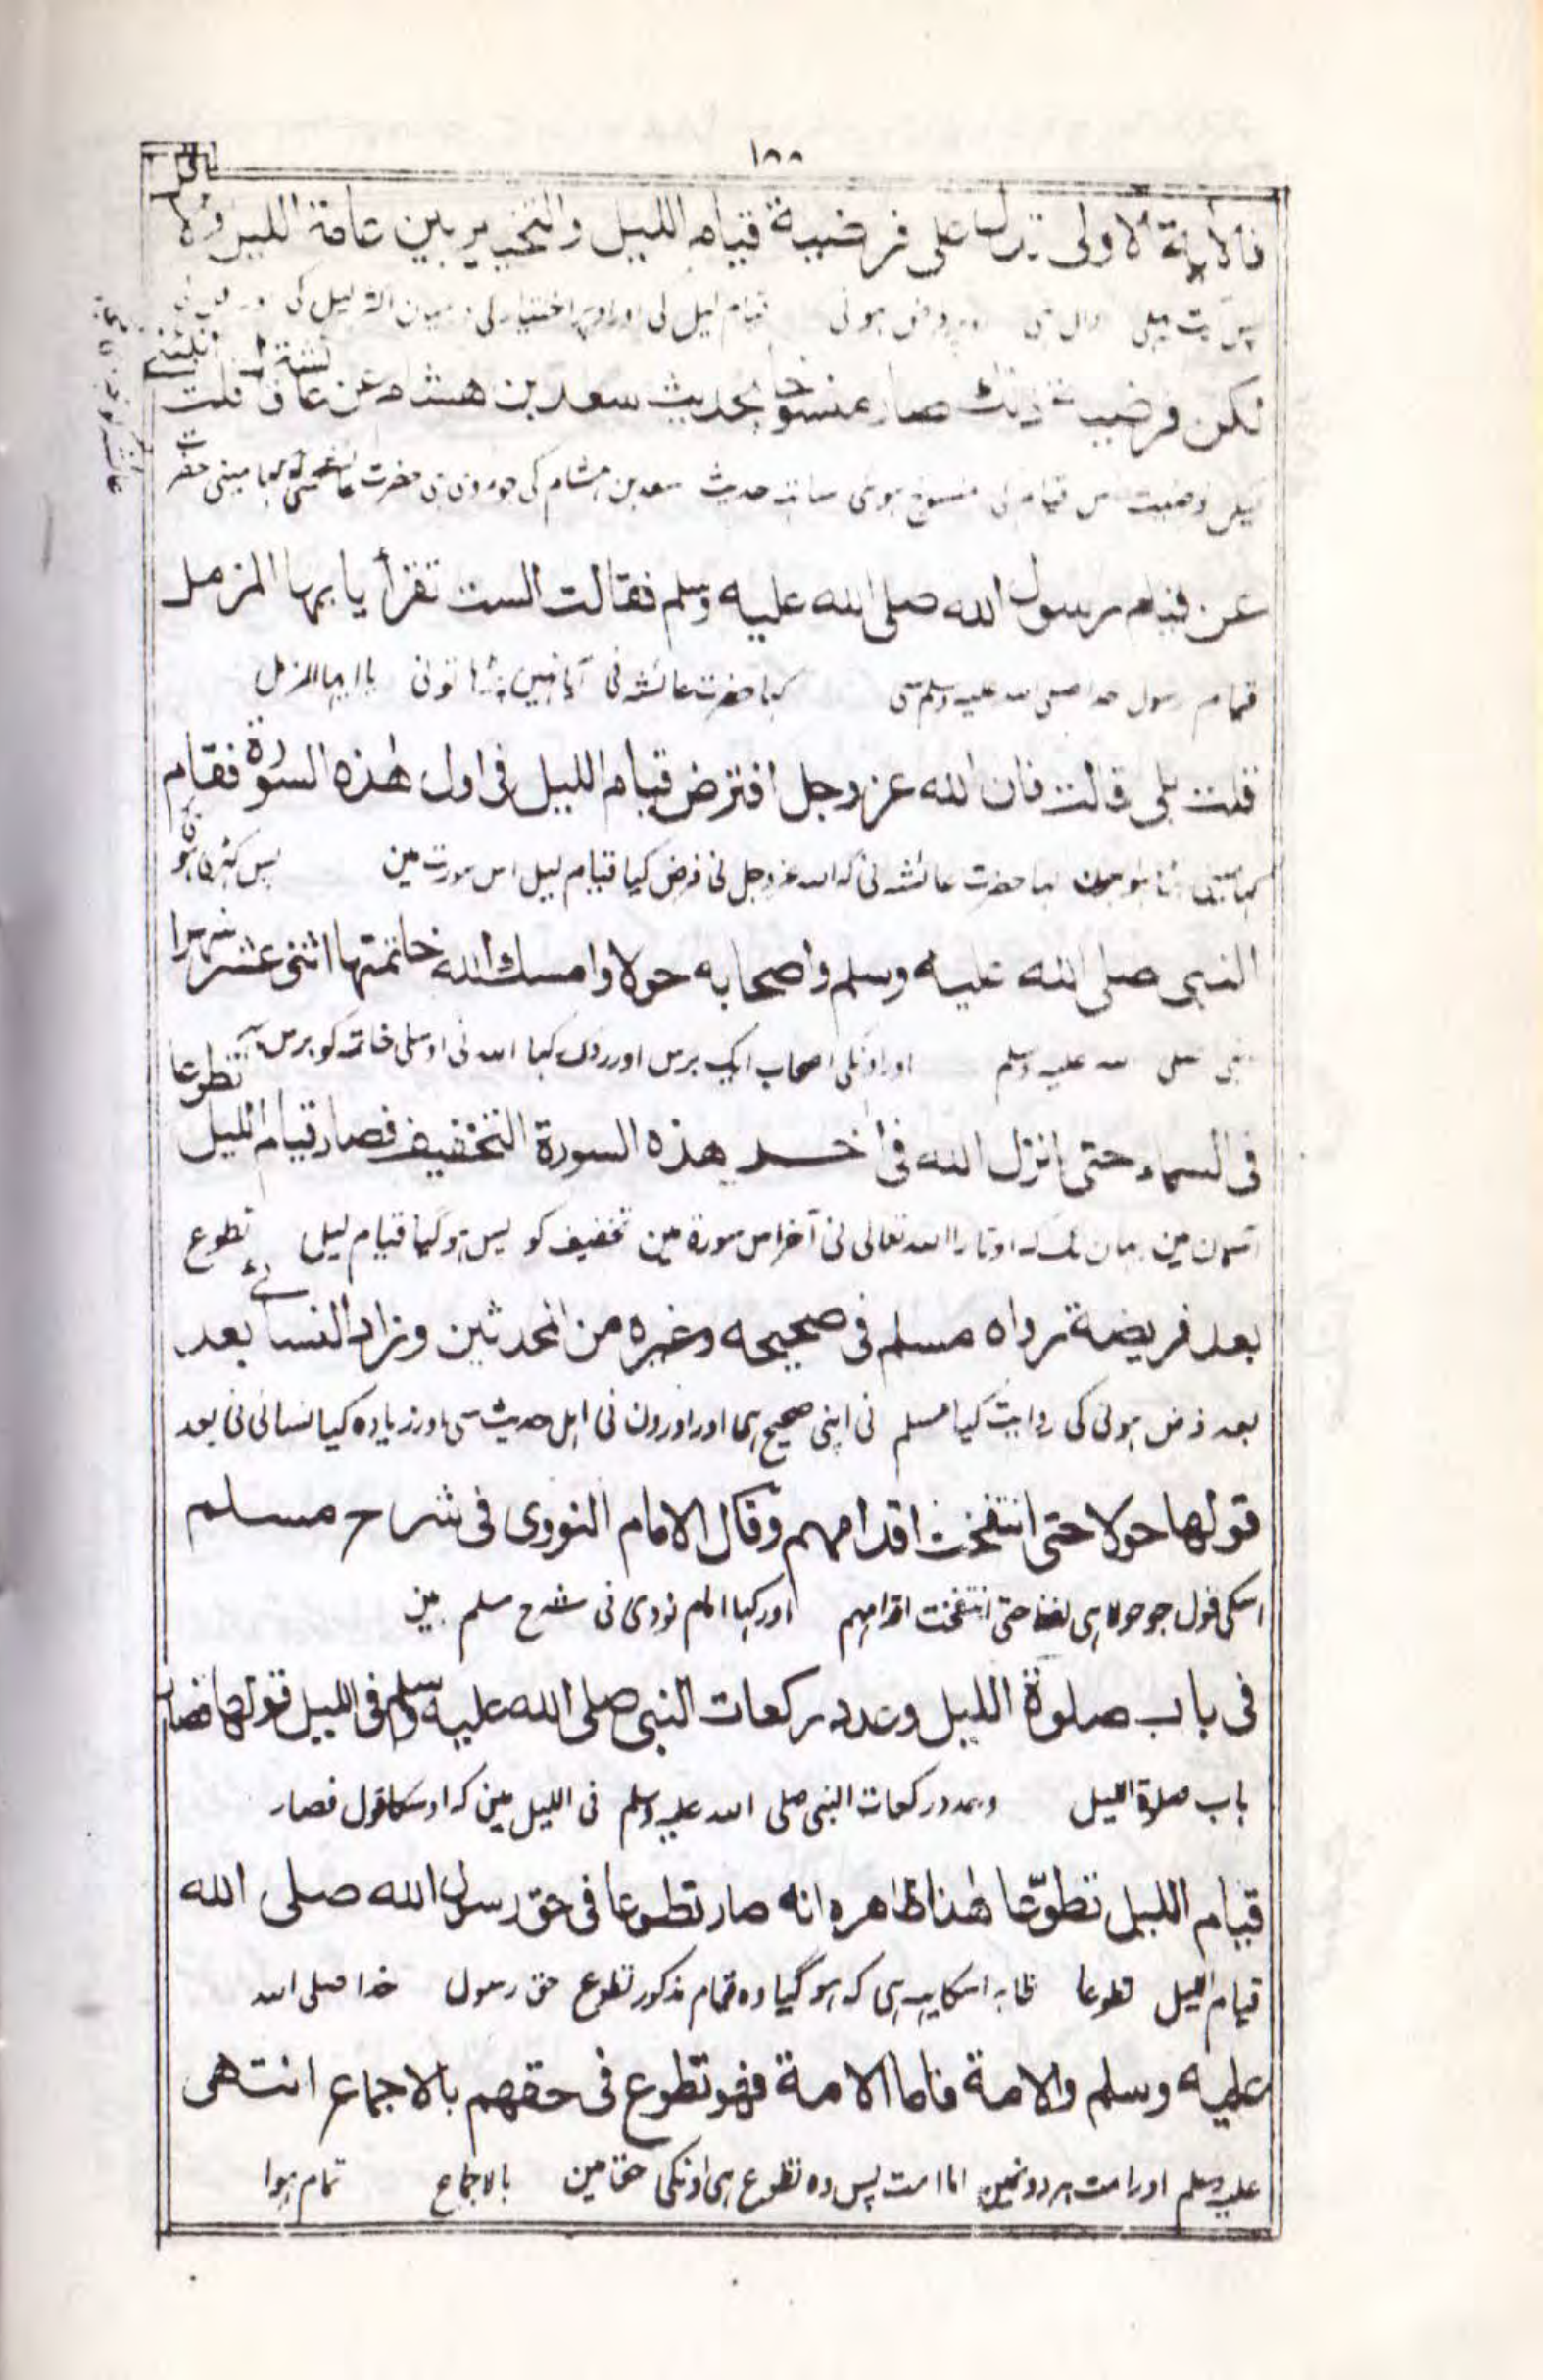 ١٨٨
فالآية الاولى تدل على فرضية قيام الليل والتخيير بين عامة الليل
پس آیت پہلی دال ہی قیام لیل کی اور اوپر اختیار کی اکثر لیل کی
لكن فرضية ذلك صار منسوخا بحديث سعد بن هشام عن عائشة قلت
لیکن فرضیت اس قیام کی منسوخ ہوی ساتہہ حدیث سعد بن ہشام کی جو مروی ہی حضرت عائشہ سی کہا مینی حضرت
عن قيام رسول الله صلى الله عليه وسلم فقالت الست تقرأ يا ايها المزمل
قیام رسول خدا صلی اللہ علیہ وسلم سی کہا حضرت عائشہ نی آیا نہین پڑہا تونی یا ایہا المزمل
قلت بلى قالت فان الله عز وجل افترض قيام الليل فى اول هذه السورة فقام
کہا مینی کہا حضرت عائشہ نی کہ اللہ عز وجل نی فرض کیا قیام لیل اس سورت مین پس کہڑی ہو
النبى صلى الله عليه وسلم واصحابه حولا وامسك الله خاتمتها اثنى عشر شهرا
نبی صلی اللہ علیہ وسلم اور اونکی اصحاب ایک برس اور روک کہا اللہ نی اوسکی خاتمہ کو برس
فى السماء حتى انزل الله فى اخر هذه السورة التخفيف فصار قيام الليل تطوعا
آسمان مین یہان تک کہ اوتارا اللہ تعالی نی آخر اس سورة مین تخفیف کو پس ہوگیا قیام لیل تطوع
بعد فريضة رواه مسلم فى صحيحه وغيره من المحدثين وزاد النسائے بعد
بعد فرض ہونی کی روایت کیا مسلم نی اپنی صحیح اور اورون نی اہل حدیث سی اور زیادہ کیا نسائی نی بعد
قولها حولا حتى انتفخت اقدامهم وقال الامام النووى فى شرح مسلم
اسکی قول جو حولا ہی لفظ حتی انتفخت اقدامہم اور کہا امام نووی نی شرح مسلم مین
فى باب صلوة الليل وعدد ركعات النبى صلى الله عليه وسلم فى الليل قولها فصار
باب صلاة اللیل وعدد رکعات النبی صلی اللہ علیہ وسلم فی اللیل مین کہ اوسکا قول فصار
قيام الليل تطوّعا هذا ظاهره انه صار تطوعا فى حق رسول الله صلى الله
قیام اللیل تطوعا ظاہر اسکا یہہ ہی کہ ہوگیا وہ قیام مذکور تطوع حق رسول خدا صلی اللہ
عليه وسلم والامة فاما الامة فهو تطوع فى حقهم بالاجماع انتهى
علیہ وسلم اور امت ہر دو مین اما امت پس وہ تطوع ہی اونکی حق مین بالاجماع تمام ہوا